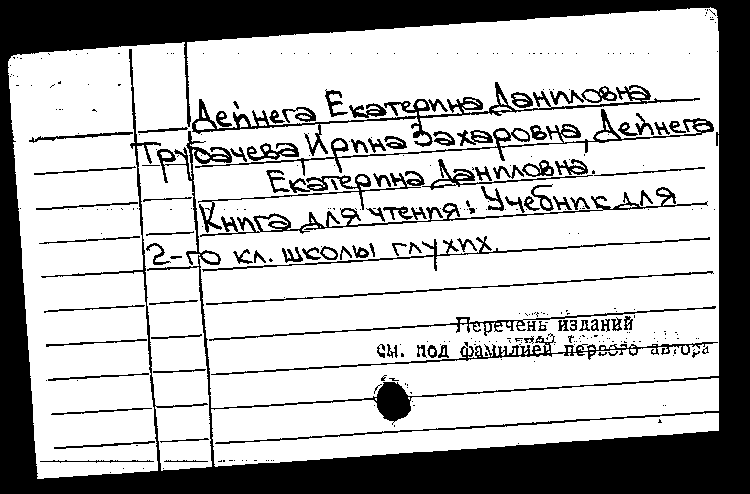 Дейнега Екатерина Даниловна.
Трубачева, Ирина Захаровна, Дейнега,
Екатерина Даниловна.
Книга для чтения: Учебник для
2-го кл. школы глухих.
Перечень изданий
см. под фамилией первого автора